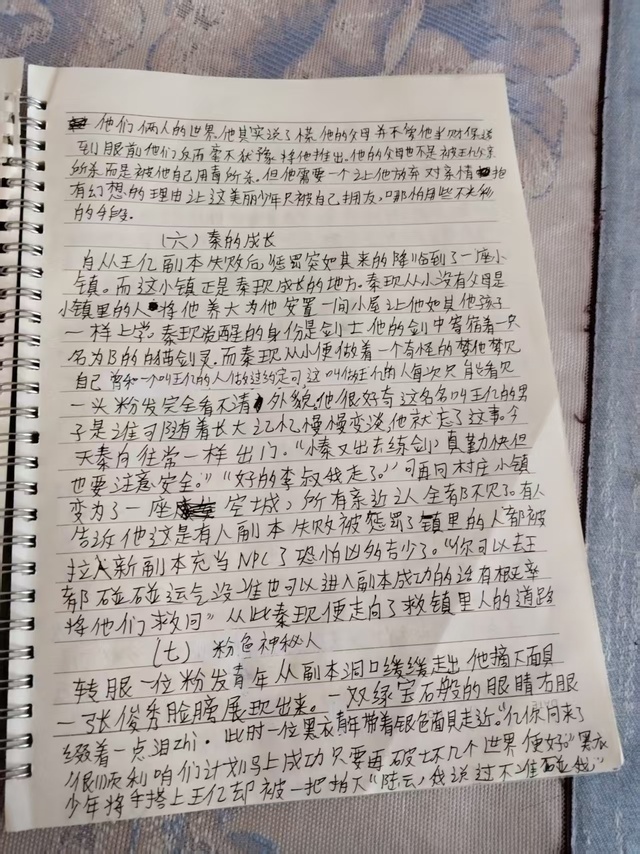 他们俩人的世界。他其实说了慌他的父母并不曾他
到服前他们反而毫不犹豫将他推出。他的父母也不是被王亿父亲
所杀而是被他自己用毒所杀。但他需要一个让他放弃对亲情抱
有幻想的理由让这美丽少年只被自己拥友,哪怕用些不光彩
的手段。
(六)秦的成长
自从王亿副本失败后,惩罚突如其来的降临到了一座小
镇。而这小镇正是秦现成长的地方。秦现从小没有父母是
小镇里的人将他养大为他安置一间小屋让他如其他孩子
一样上学。秦现觉醒的身份是剑士他的剑中寄宿着一只
名为B的白猫剑灵。而秦现从小便做着一个奇怪的梦他梦见
自己曾和一个叫王亿的人做过约定可这叫做王亿的人每次只能看见
一头粉发完全看不清外貌。他很好奇这名名叫王亿的男
子是谁可随着长大记忆慢慢变淡他就忘了这事。今
天秦向往常一样出门。“小秦又出去练剑,真勤快但
也要注意安全。”“好的李叔我走了。”可再回村庄小镇
变为了一座空城,所有亲近之人全都不见了。有人
告诉他这是有人副本失败被惩罚了镇里的人都被
拉入新副本充当NPC了恐怕凶多吉少了。“你可以去王
都碰碰运气没准也可以进入副本成功的话有概率
将他们救回”从此秦现便走向了救镇里人的道路
(七)粉色神秘人
转眼一位粉发青年从副本洞口缓缓走出他摘下面具
一张俊秀脸膛展现出来。一双绿宝石般的眼睛右眼
缀着一点泪zhi.此时一位黑衣青年带着银色面具走近。“亿你回来了
“很顺利咱们计划马上成功只要再破坏几个世界便好。”黑衣
少年将手搭上王亿却被一把拍下“陆云,我说过不准碰我”